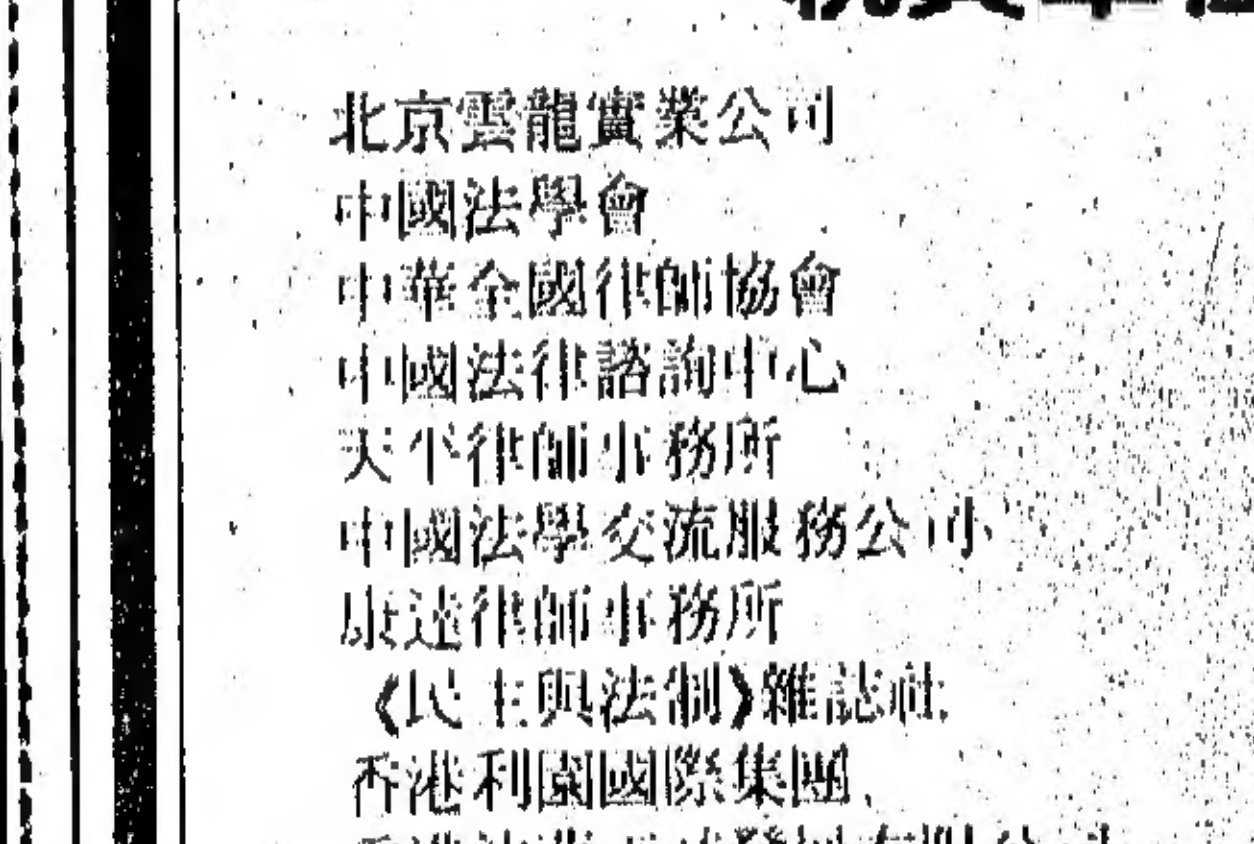 北京雲龍實業公司
中國法學會
中華全國律師協會
中國法律諮詢中心
天平律師事務所
中國法學交流服務公司
康達律師事務所
《民主與法制》雜誌社
香港利園國際集團